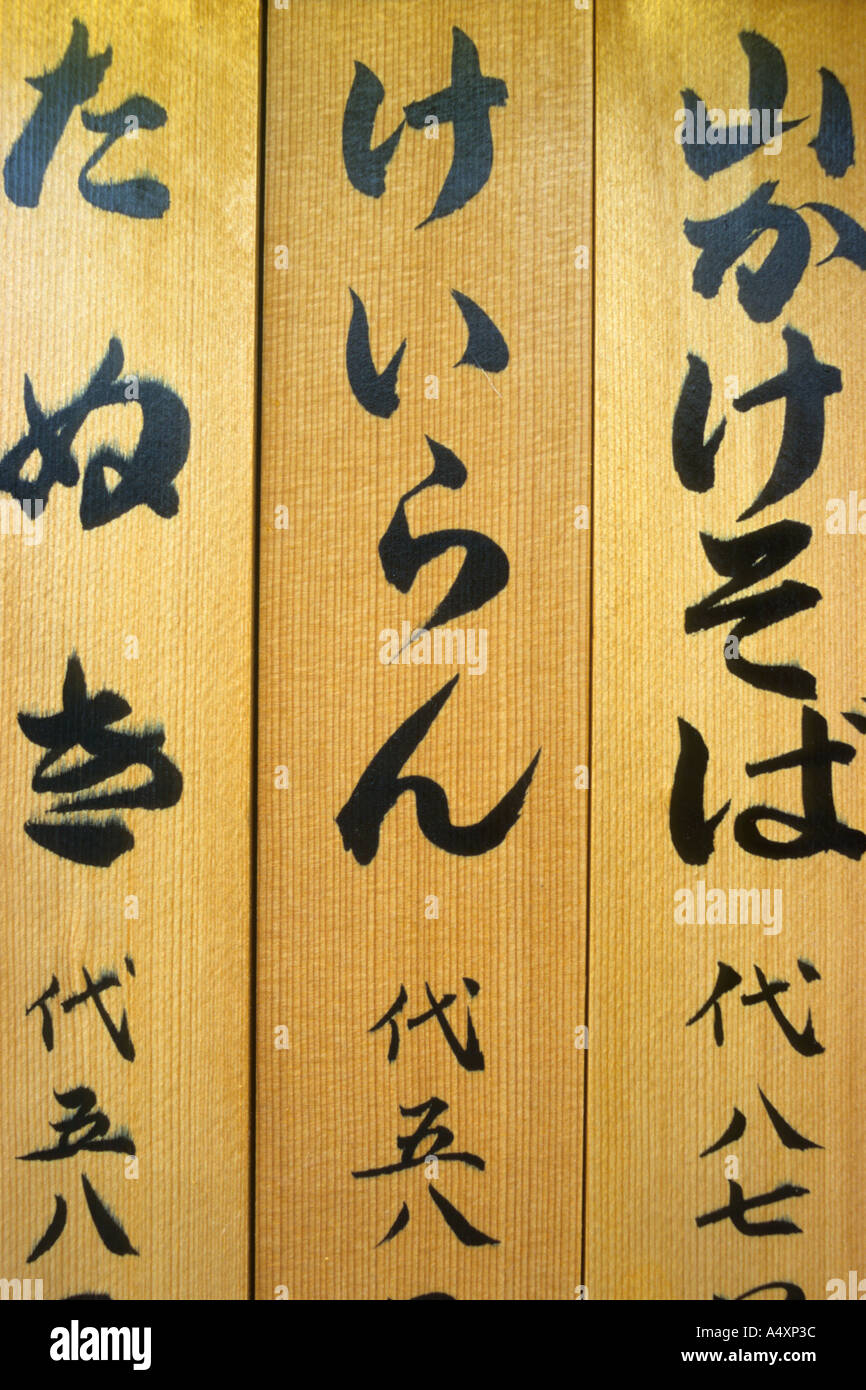 山かけそば 代八七
けいらん 代五八
たぬき 代五八
alamy
Image ID: A4XP3C
www.alamy.com